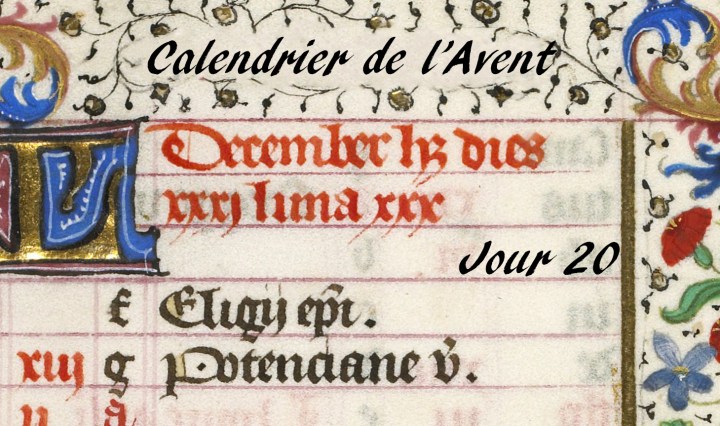 Calendrier de l'Avent
December hz dies
xxxj luna xxx
Jour 20
f Eligij epi.
xiij g Potenciane v.
ii a